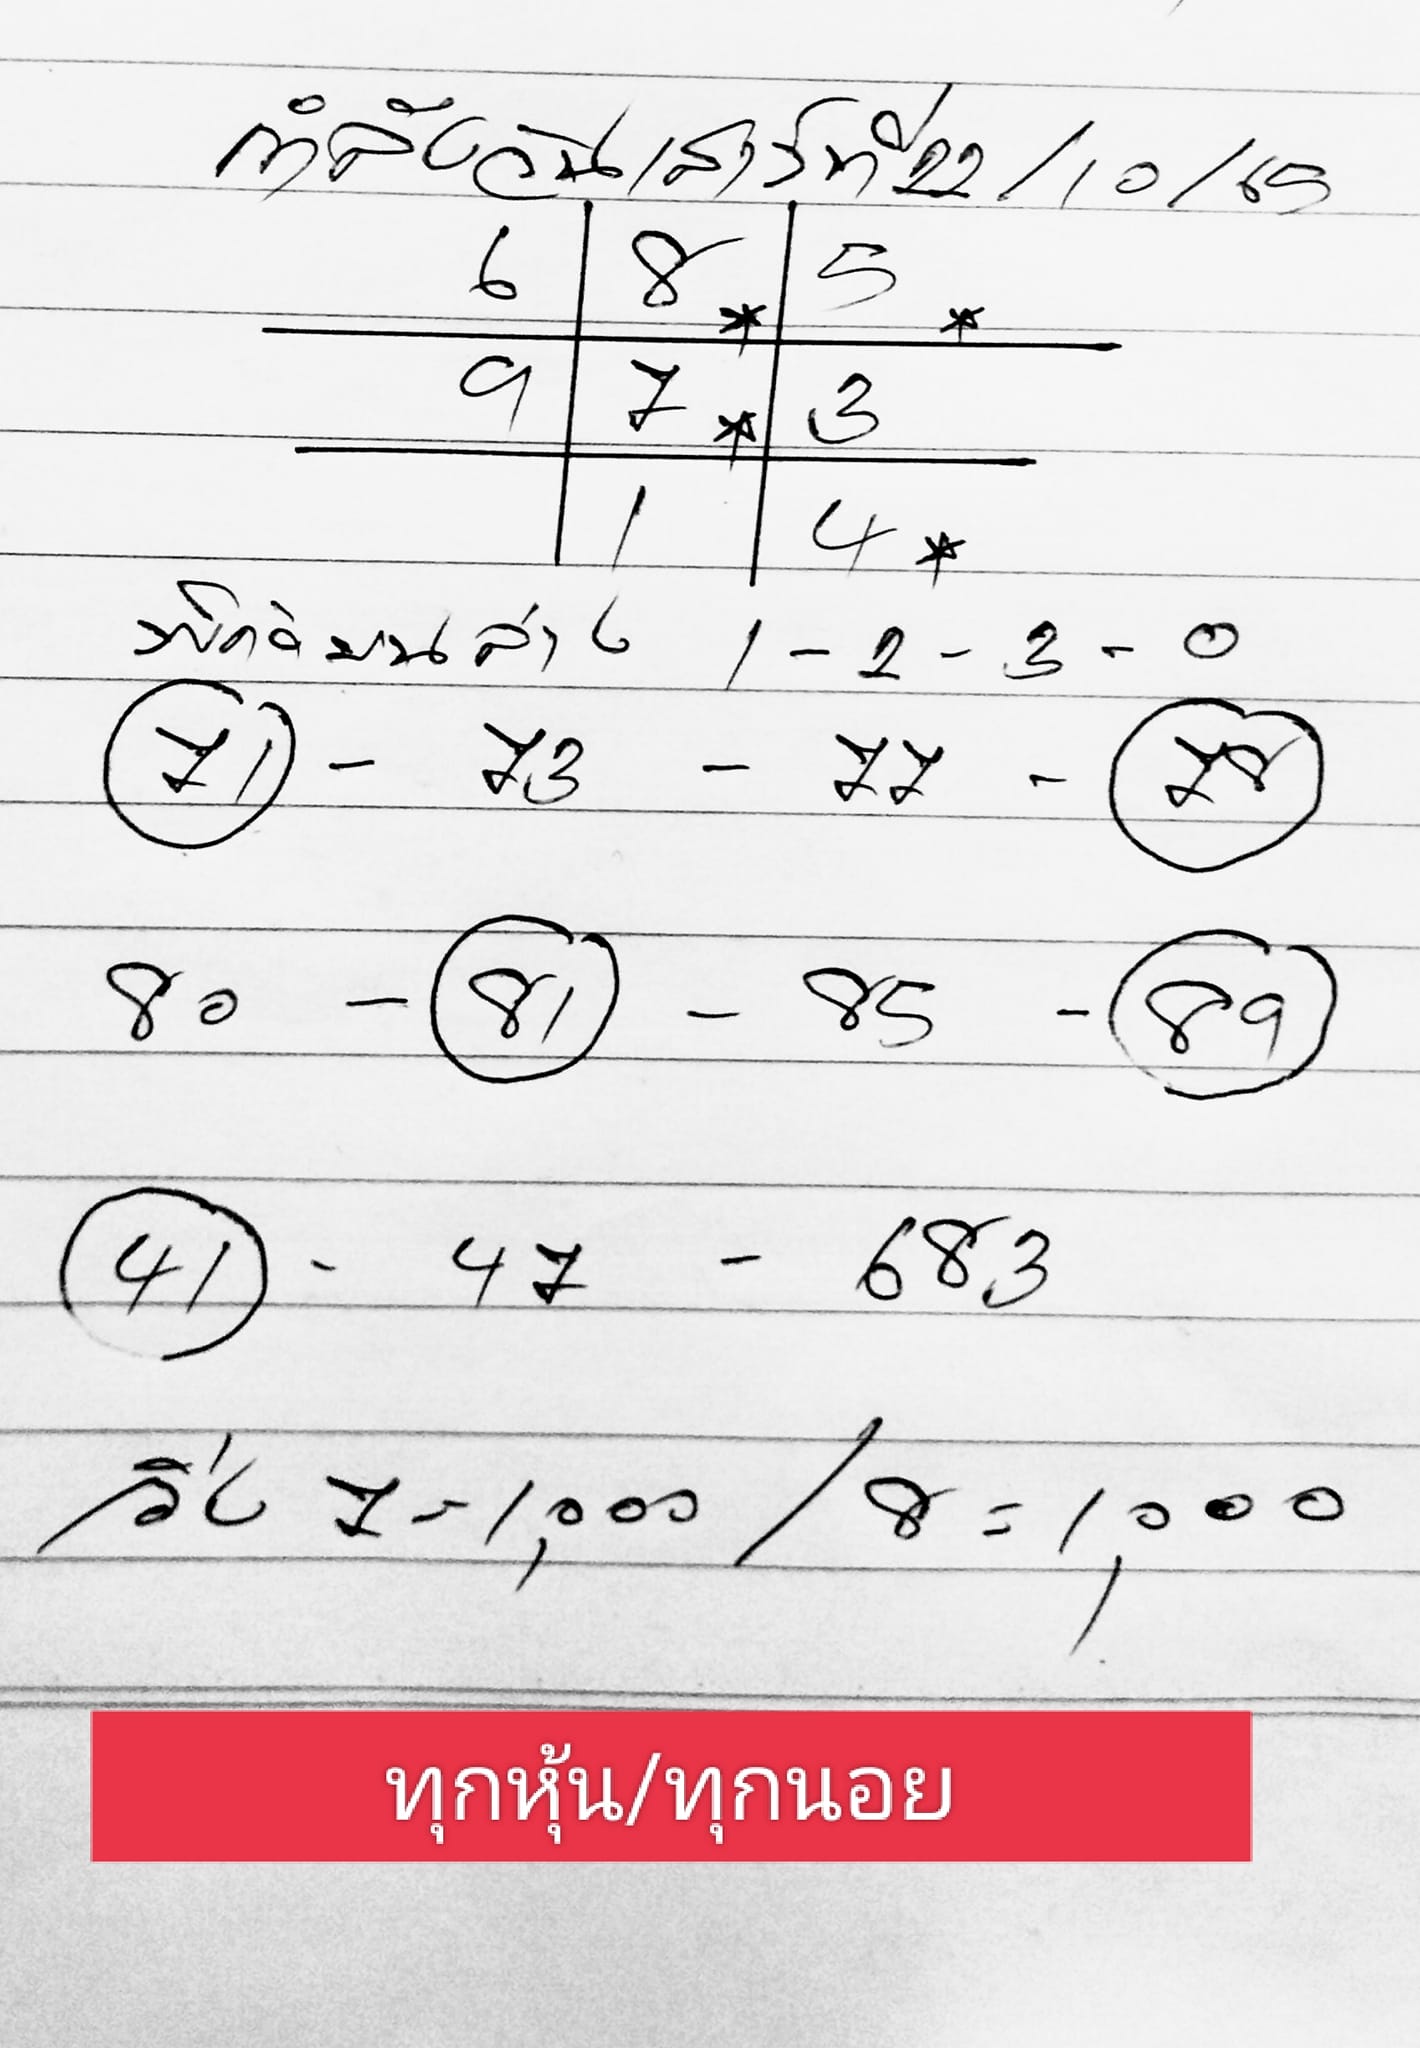 กำลังวันเสาร์ที่ 22/10/65
6 8* 5*
9 7* 3
1 4*
พิกัดบนล่าง 1 - 2 - 3 - 0
71 - 73 - 77 - 78
80 - 81 - 85 - 89
41 - 47 - 683
วิ่ง 7 = 1,000 / 8 = 1,000
ทุกหุ้น/ทุกนอย